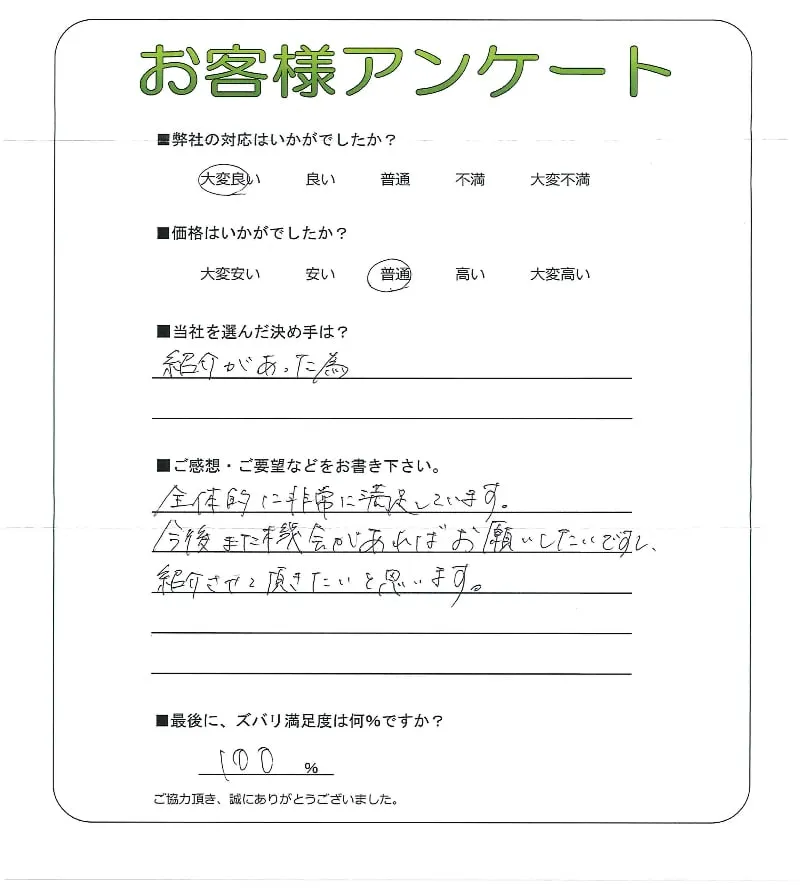 お客様アンケート
■弊社の対応はいかがでしたか？
大変良い 良い 普通 不満 大変不満
■価格はいかがでしたか？
大変安い 安い 普通 高い 大変高い
■当社を選んだ決め手は？
紹介があった為
■ご感想・ご要望などをお書き下さい。
全体的に非常に満足しています。
今後また機会があればお願いしたいですし、
紹介させて頂きたいと思います。
■最後に、ズバリ満足度は何％ですか？
100 %
ご協力頂き、誠にありがとうございました。